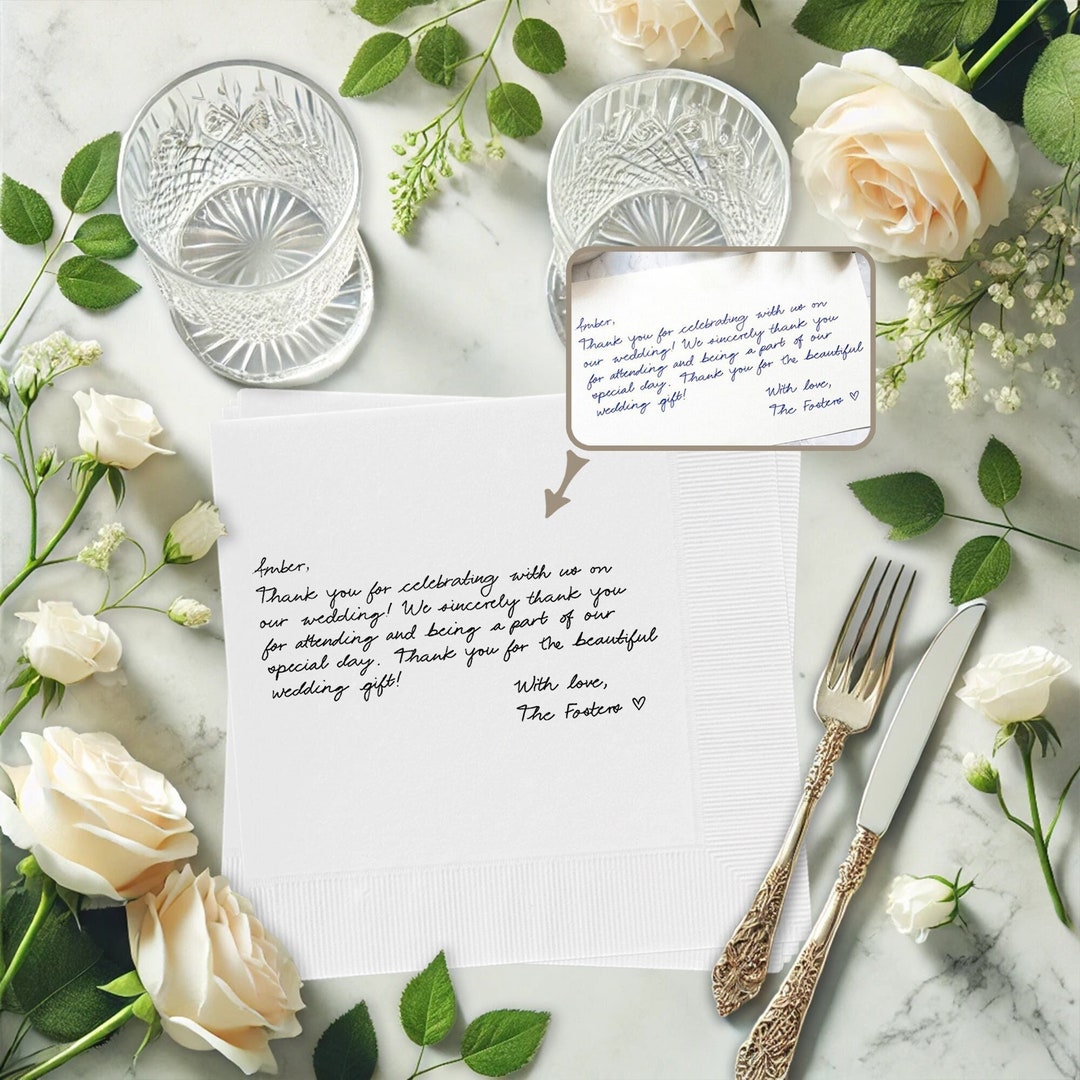 Amber,
Thank you for celebrating with us on
our wedding! We sincerely thank you
for attending and being a part of our
special day. Thank you for the beautiful
wedding gift!
With love,
The Fosters ♡
Amber,
Thank you for celebrating with us on
our wedding! We sincerely thank you
for attending and being a part of our
special day. Thank you for the beautiful
wedding gift!
With love,
The Fosters ♡